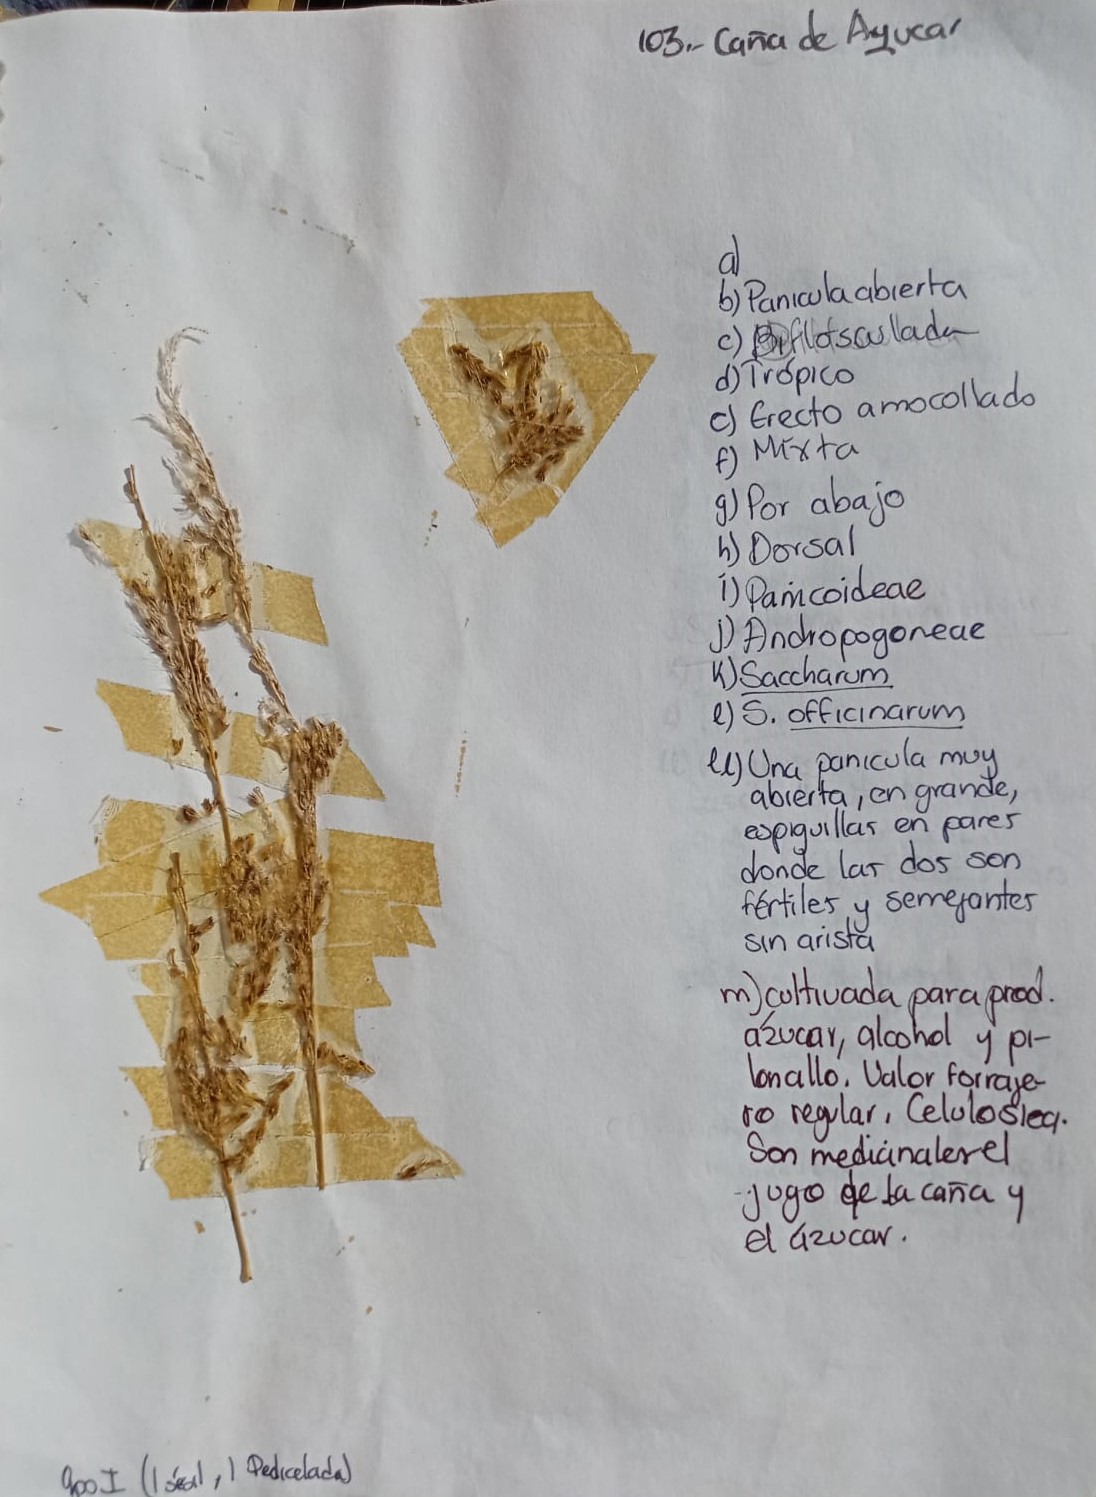 103.- Caña de Ayucar
a)
b) Panicula abierta
c) Biflosculada
d) Trópico
e) Erecto amocollado
f) Mixta
g) Por abajo
h) Dorsal
i) Panicoideae
j) Andropogoneae
k) Saccharum
l) S. officinarum
ll) Una panicula muy
abierta, en grande,
espiguillas en pares
donde las dos son
fértiles y semejantes
sin arista
m) cultivada para prod.
azucar, alcohol y pi-
lonallo. Valor forraje-
ro regular. Celulosica.
Son medicinales el
jugo de la caña y
el azucar.
gpo I (1 sésil, 1 Pedicelada)